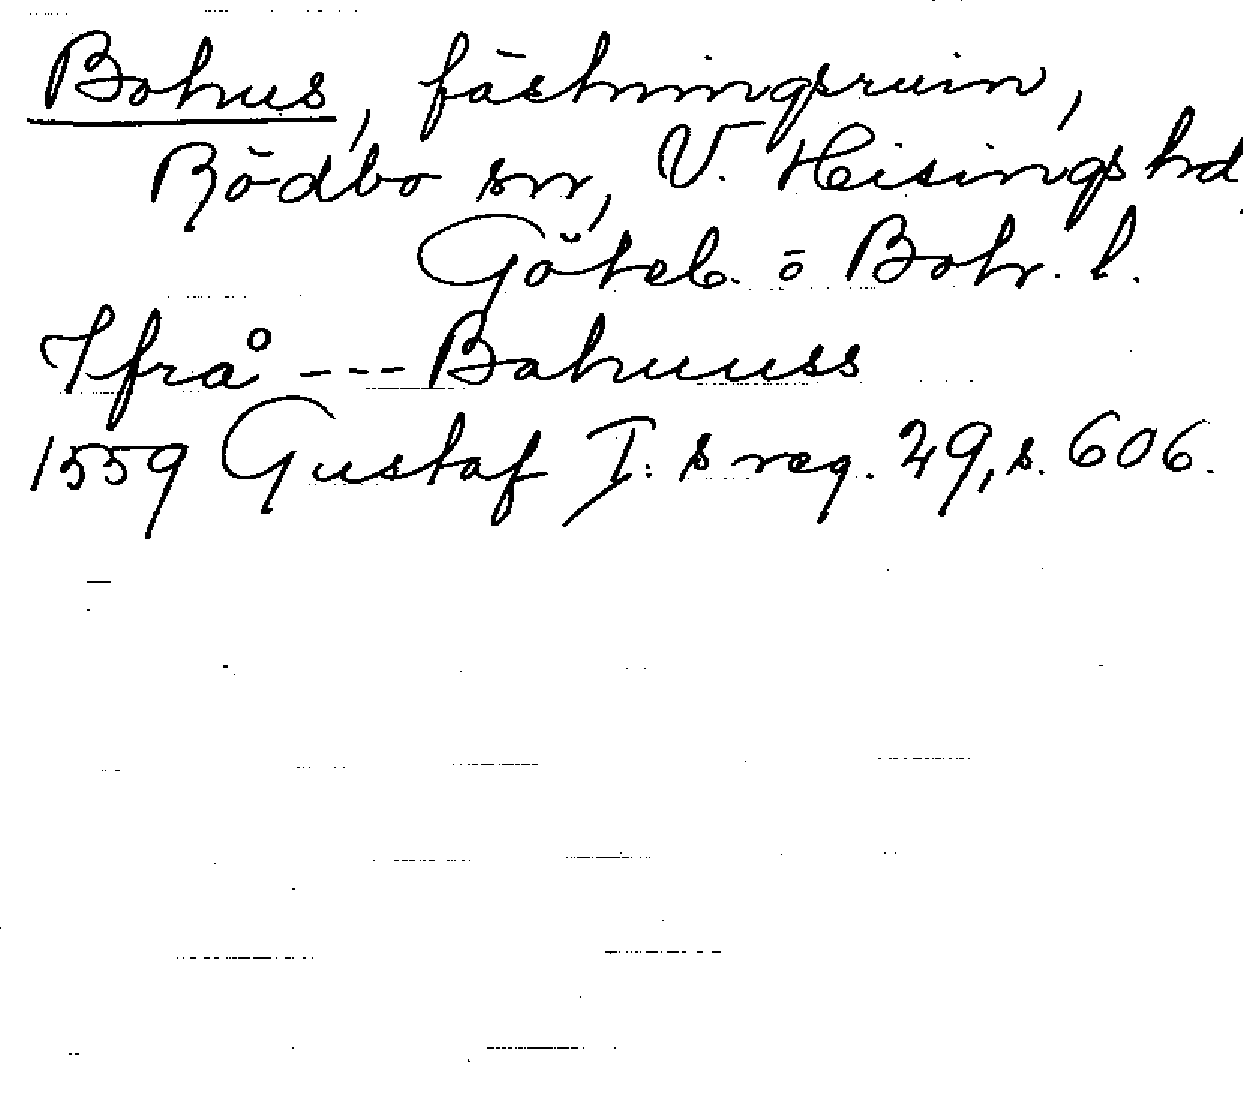 Bohus, fästningsruin,
Rödbo sn, V. Hisings hd.
Göteb. o Boh. l.
Ifrå --- Bahuuss
1559 Gustaf I: s reg. 29, s. 606.